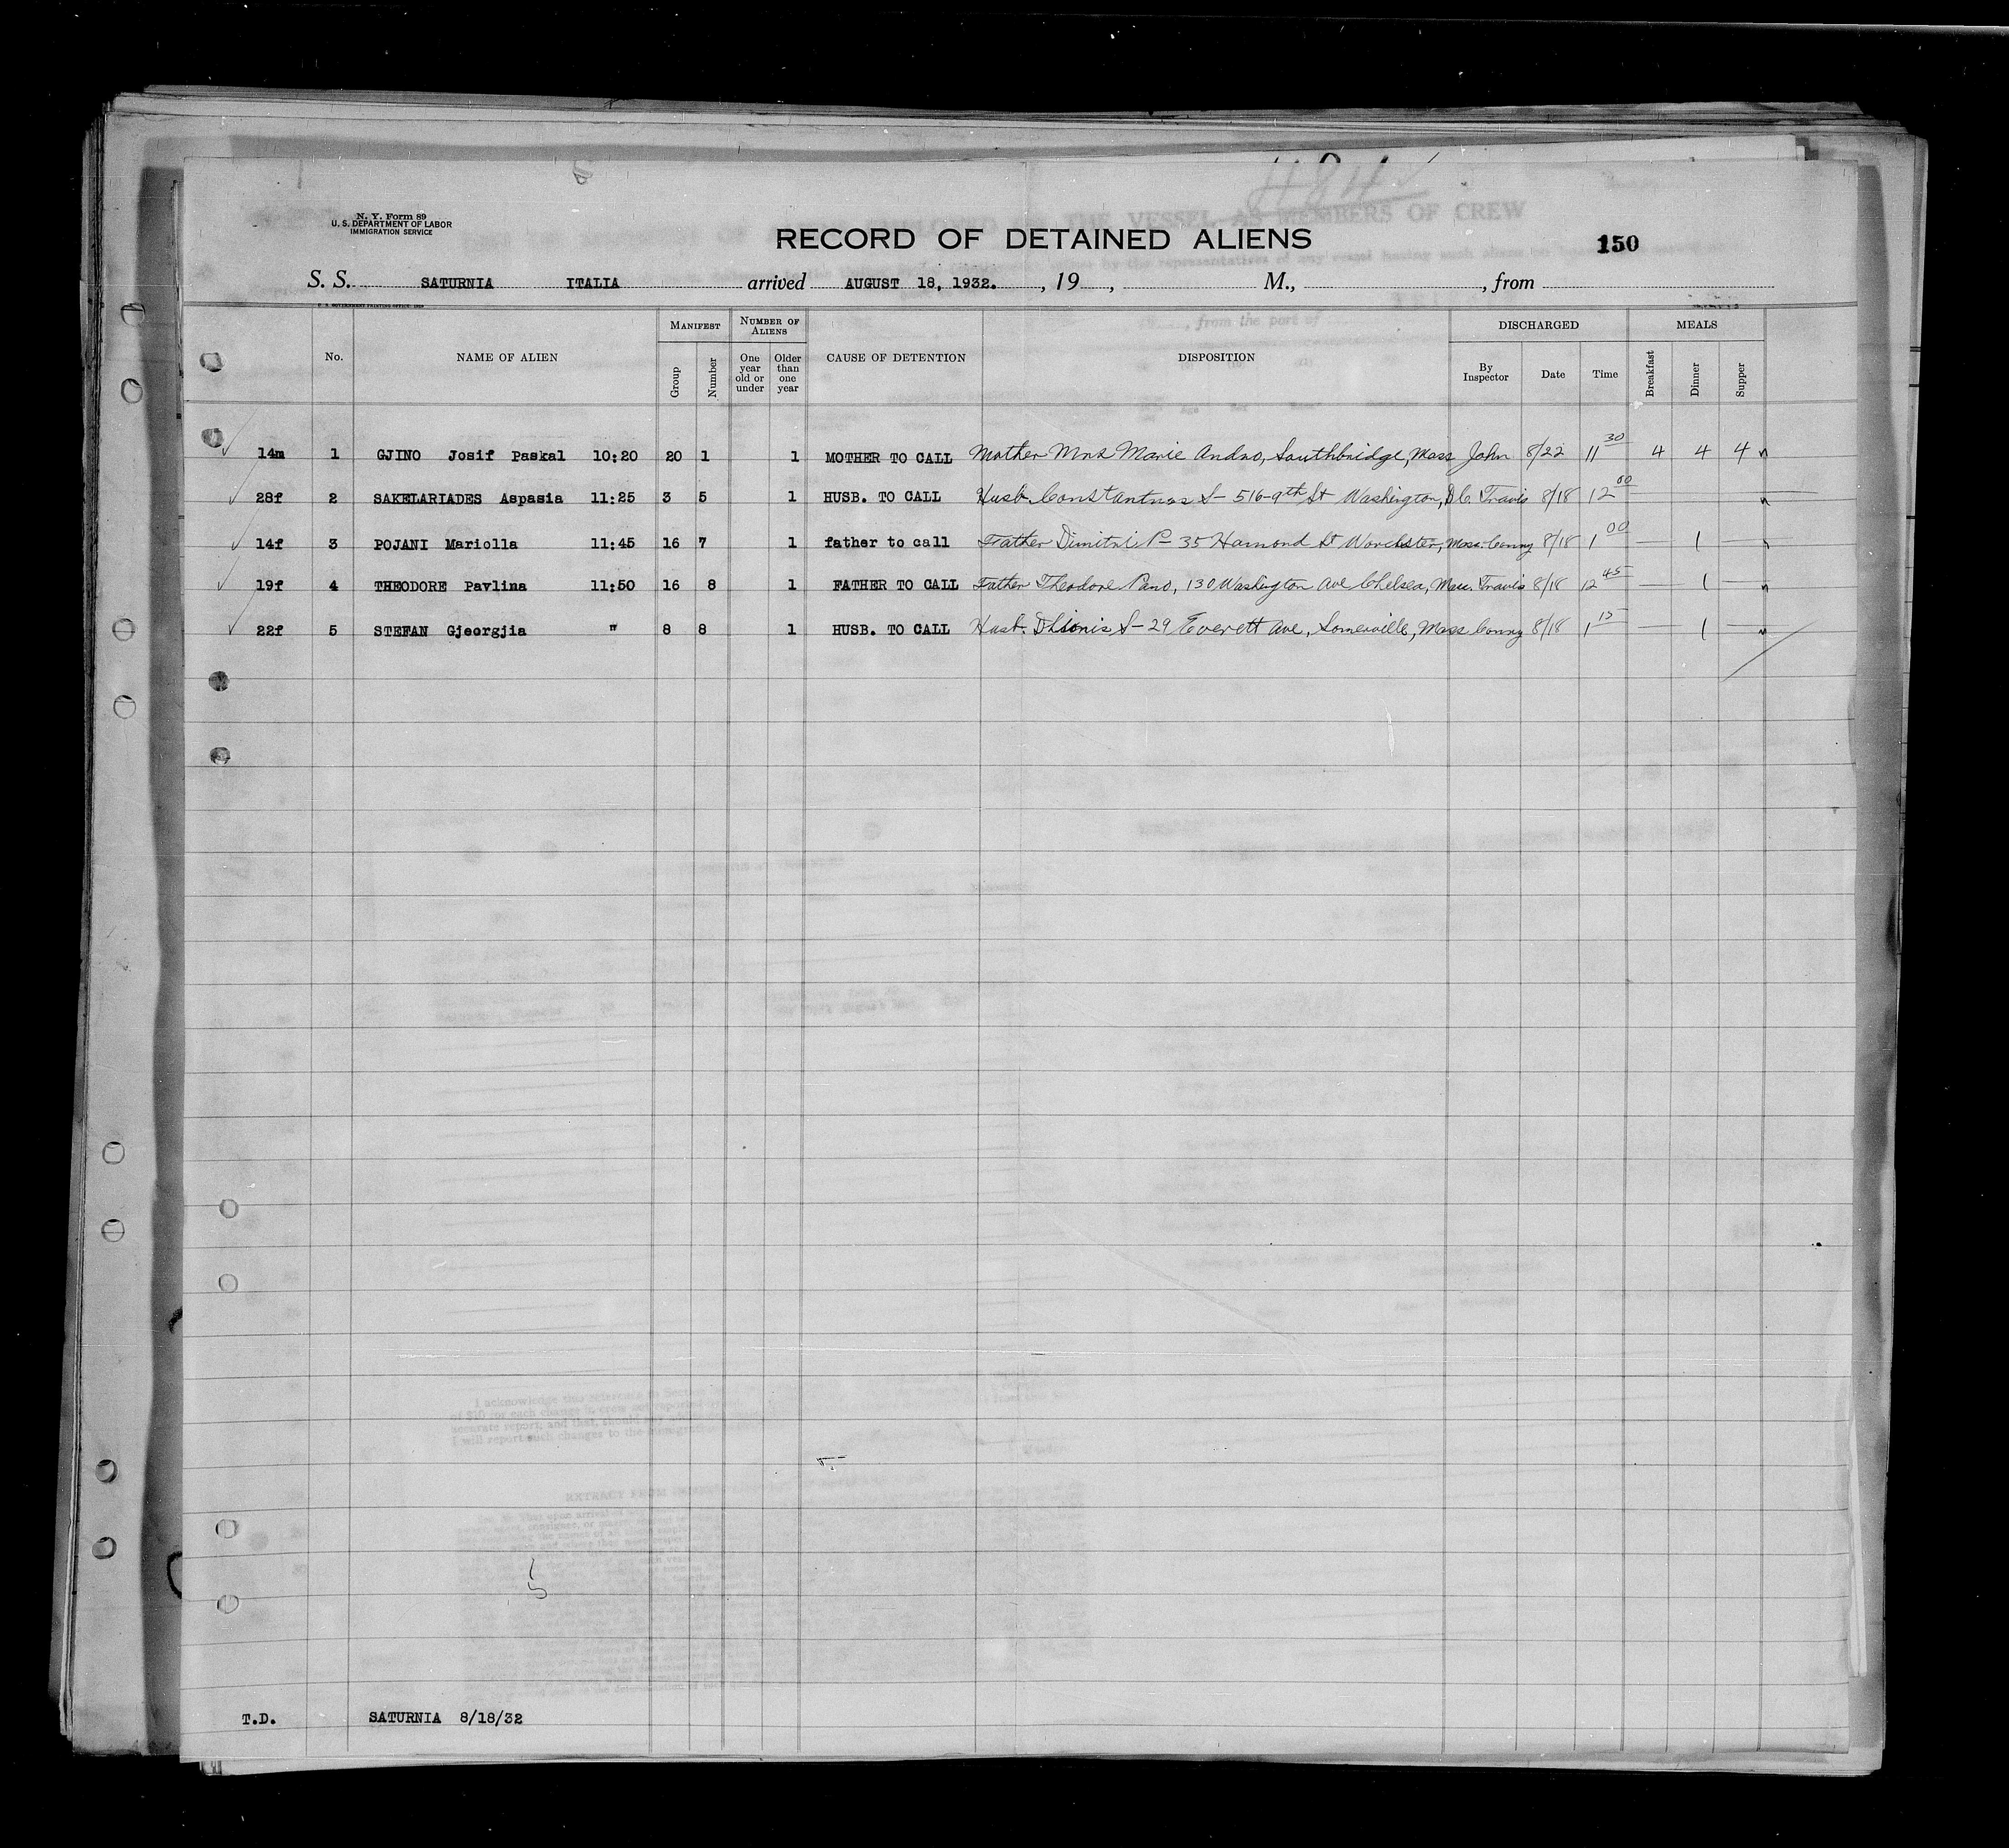 484
N. Y. Form 89
U. S. DEPARTMENT OF LABOR
IMMIGRATION SERVICE
RECORD OF DETAINED ALIENS
150
S. S. SATURNIA ITALIA arrived AUGUST 18, 1932. , 19 , M., , from
No. NAME OF ALIEN MANIFEST Group Number NUMBER OF ALIENS One year old or under Older than one year CAUSE OF DETENTION DISPOSITION DISCHARGED By Inspector Date Time MEALS Breakfast Dinner Supper
14m 1 GJINO Josif Paskal 10:20 20 1 1 MOTHER TO CALL Mother Mrs Marie Andro, Southbridge, Mass John 8/22 11 30 4 4 4
28f 2 SAKELARIADES Aspasia 11:25 3 5 1 HUSB. TO CALL Husb. Constantinos S - 516-9th St Washington, D.C. Travis 8/18 12 00
14f 3 POJANI Mariolla 11:45 16 7 1 father to call Father Dimitri P - 35 Hamond St Worchster, Mass. Conny 8/18 1 00 — 1 —
19f 4 THEODORE Pavlina 11:50 16 8 1 FATHER TO CALL Father Theodore Pano, 130 Washington Ave Chelsea, Mass. Travis 8/18 12 45 — 1 —
22f 5 STEFAN Gjeorgjia " 8 8 1 HUSB. TO CALL Husb. Dhionis S - 29 Everett Ave, Somerville, Mass Conny 8/18 1 15 — 1 —
T.D. SATURNIA 8/18/32